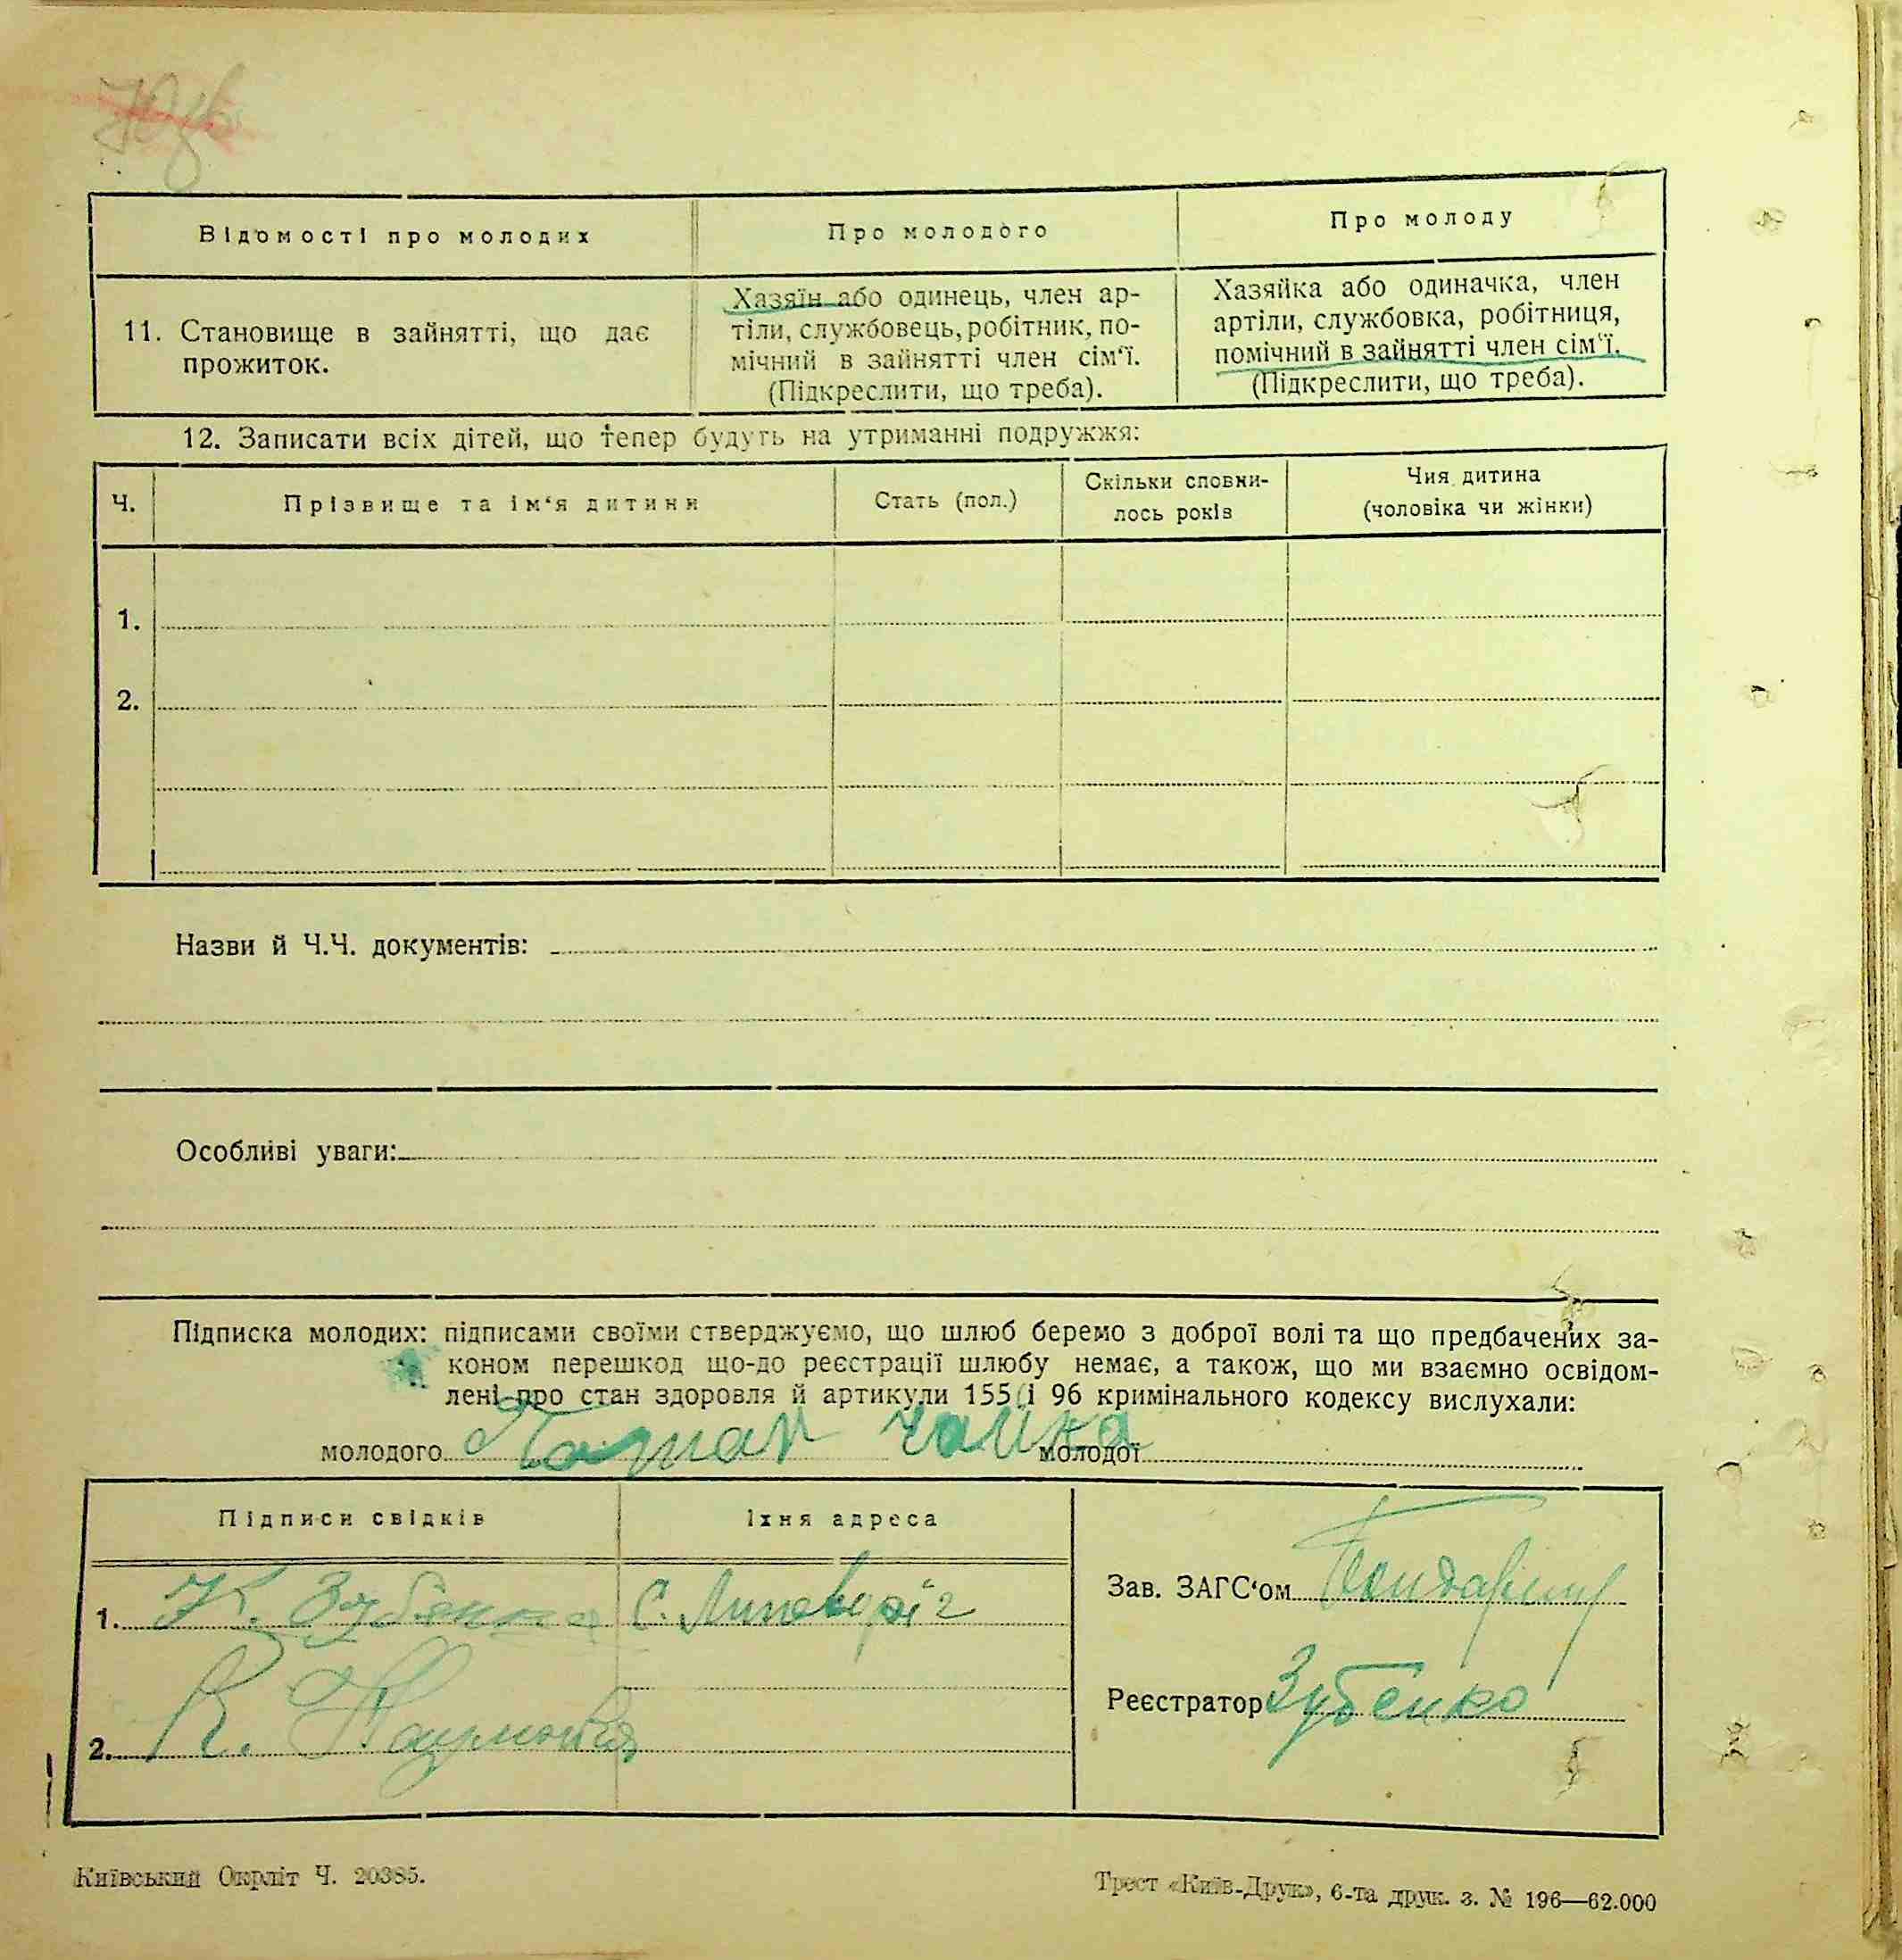 Відомості про молодих
Про молодого
Про молоду
11. Становище в зайнятті, що дає
прожиток.
Хазяїн або одинець, член ар-
тіли, службовець, робітник, по-
мічний в зайнятті член сім'ї.
(Підкреслити, що треба).
Хазяйка або одиначка, член
артіли, службовка, робітниця,
помічний в зайнятті член сім'ї.
(Підкреслити, що треба).
12. Записати всіх дітей, що тепер будуть на утриманні подружжя:
Ч.
Прізвище та ім'я дитини
Стать (пол.)
Скільки сповни-
лось років
Чия дитина
(чоловіка чи жінки)
1.
2.
Назви й Ч.Ч. документів:
Особливі уваги:
Підписка молодих: підписами своїми стверджуємо, що шлюб беремо з доброї волі та що предбачених за-
коном перешкод що-до реєстрації шлюбу немає, а також, що ми взаємно освідом-
лені про стан здоровля й артикули 155 і 96 кримінального кодексу вислухали:
молодого Чайка молодої
Підписи свідків
Їхня адреса
1. К. Зубенко С. Липоворіг
2. К.
Зав. ЗАГС'ом
Реєстратор Зубенко
Київський Окрліт Ч. 20385.
Трест «Київ-Друк», 6-та друк. з. № 196—62.000